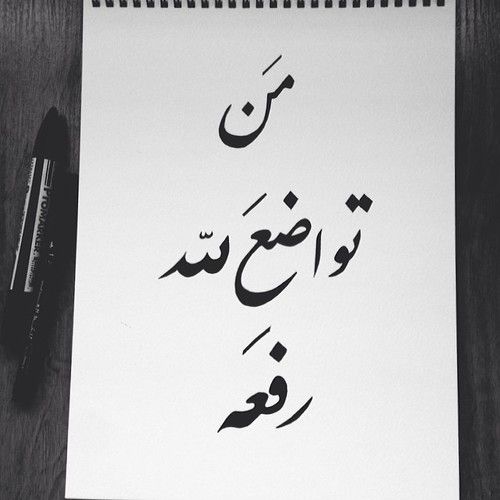 مَن
تواضعَ للّه
رفعَه